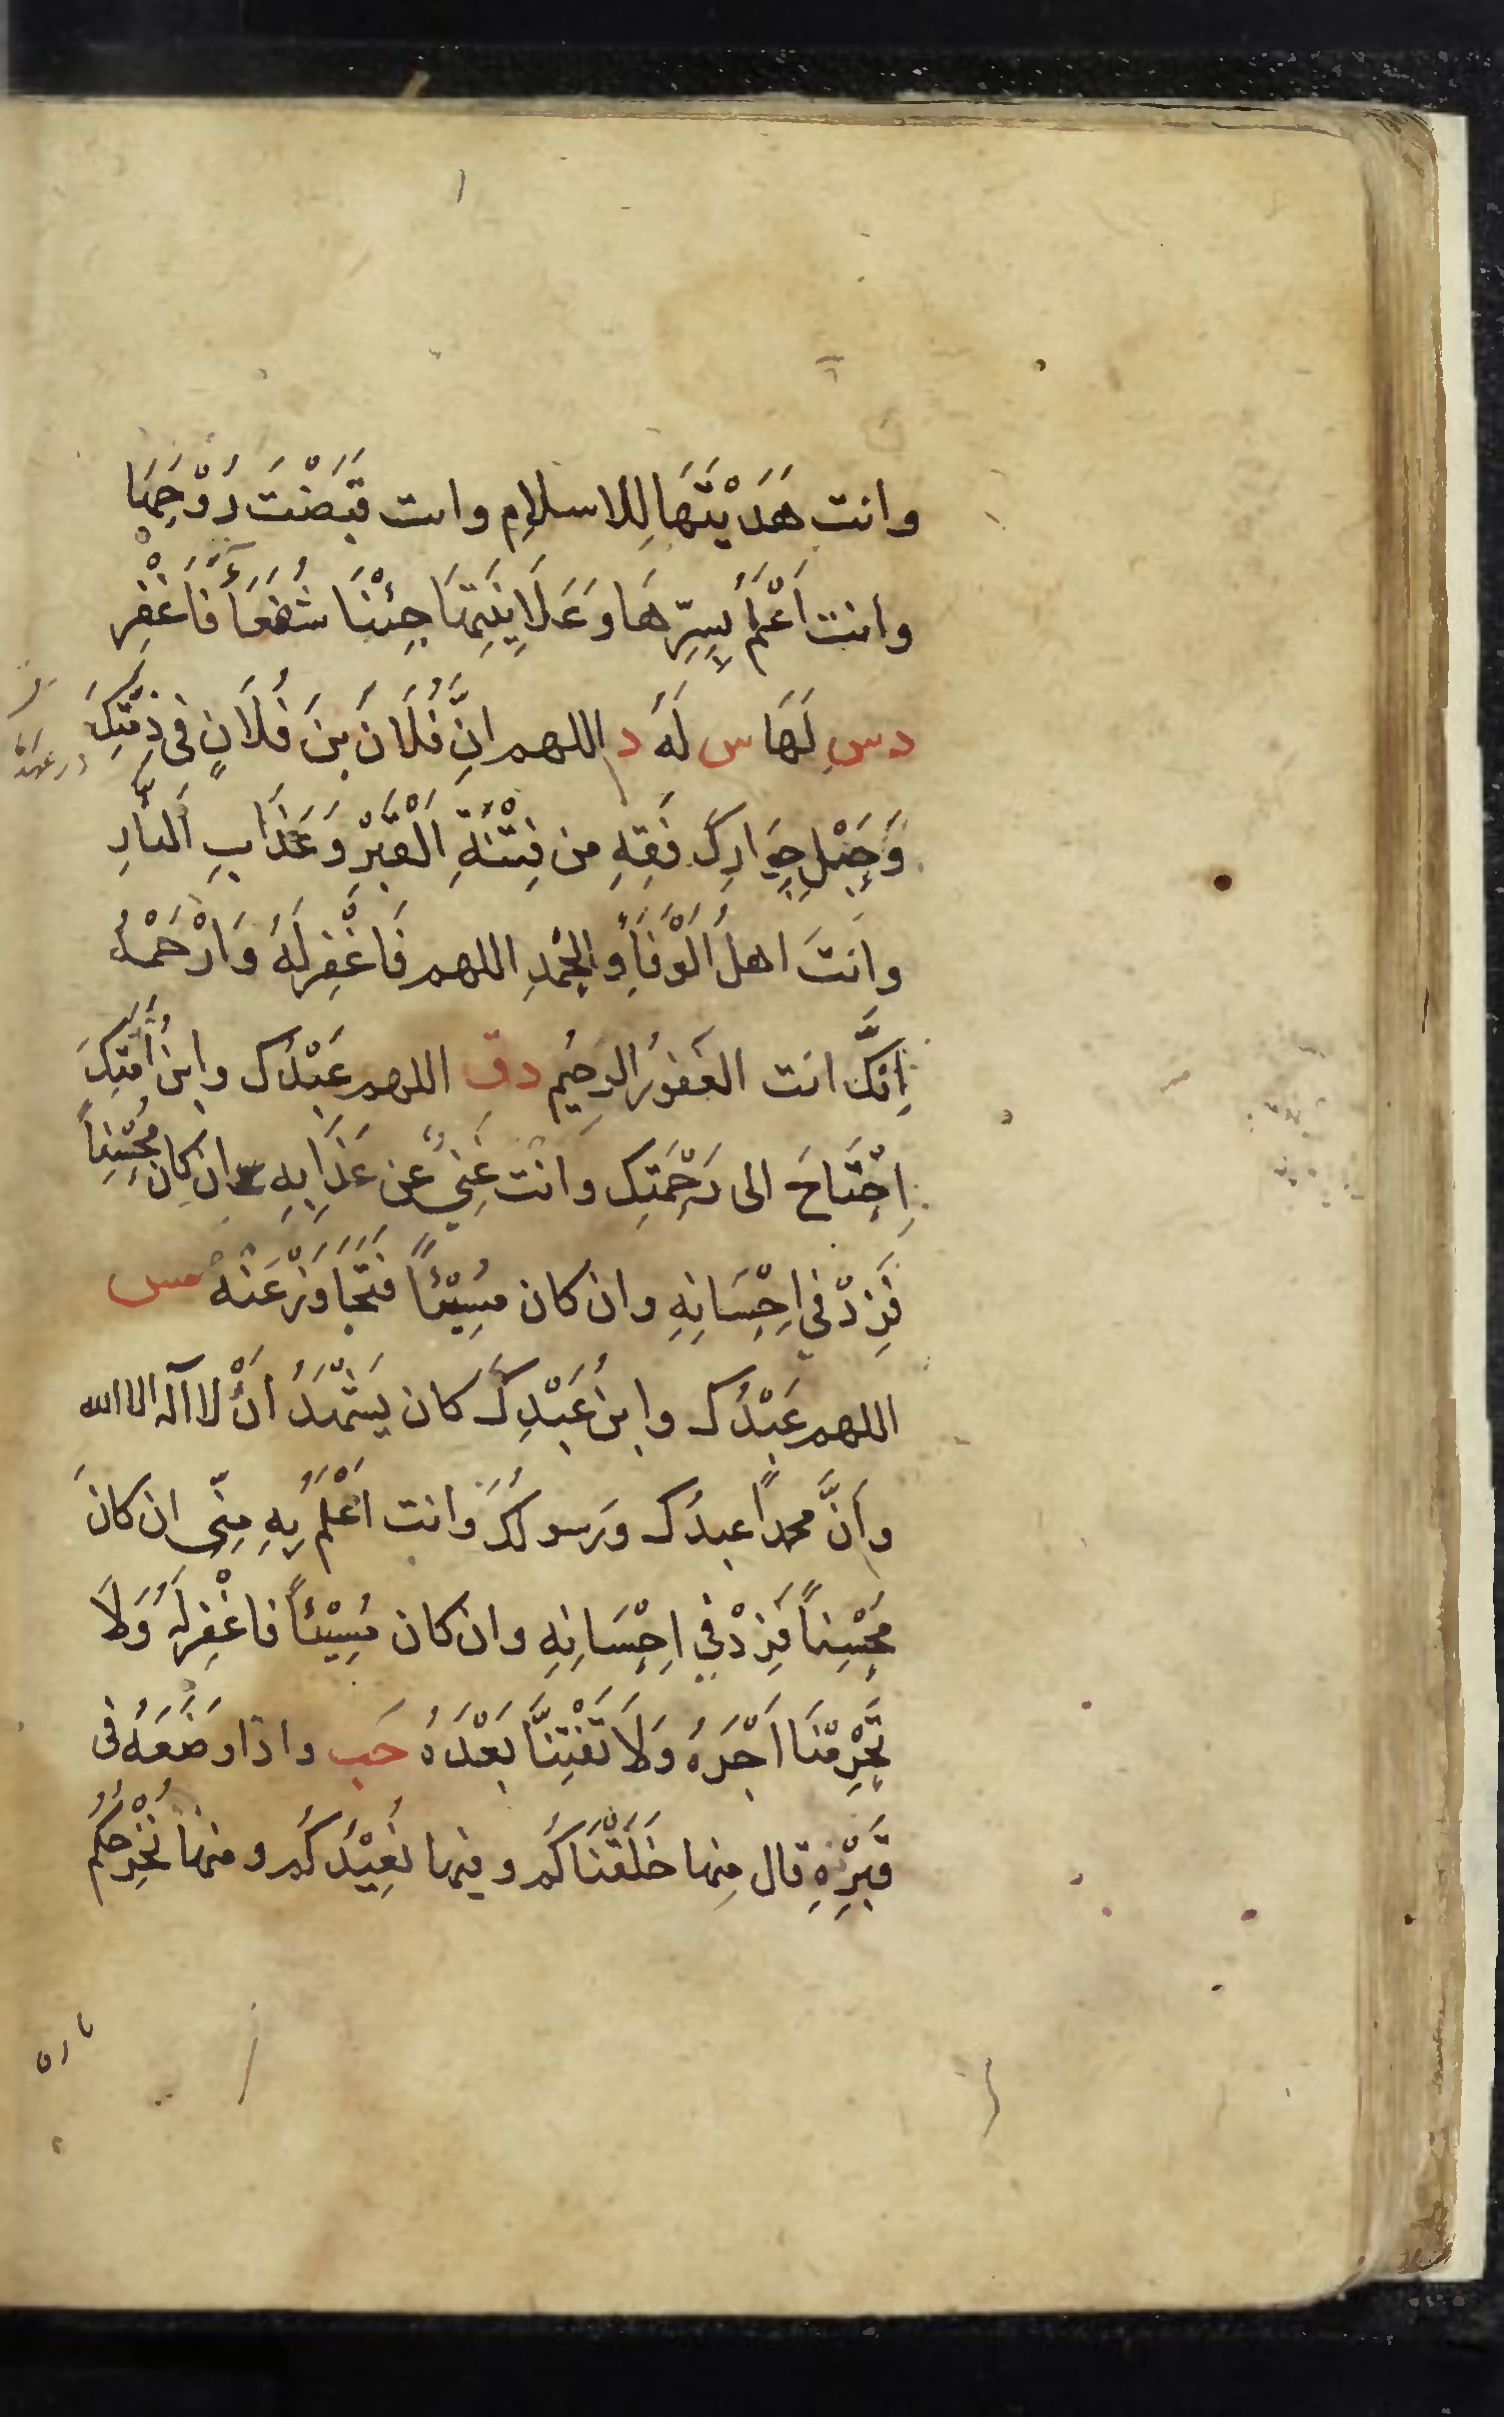 وانت هَدَيْتَهَا لِلاسلامِ وانت قَبَضْتَ رُوْحَهَا
وانت اَعْلَمُ بِسِرِّهَا وَعَلَانِيَتِهَا جِئْنَا شُفَعَآءَ فَاغْفِرْ
دس لَهَا س لَهُ د اللهم اِنَّ فُلَانَ بنَ فُلَانٍ فى ذِمَّتِكَ
وَحَبْلِ جِوَارِكَ فَقِهِ من فِتْنَةِ الْقَبْرِ وَعَذَابِ النَّارِ
وانتَ اهلُ الْوَفَاءِ والحمدِ اللهم فَاغْفِرْ لَهُ وَارْحَمْهُ
اِنَّكَ انت الغَفورُ الرَحيُم دق اللهم عَبْدُكَ وابنُ اَمَتِكَ
اِحْتَاجَ الى رَحْمَتِكَ وانت غَنِيٌّ عن عَذَابِهِ ان كان مُحْسِنًا
فَزِدْ في اِحْسَانِهِ وان كان مُسِيْئًا فَتَجَاوَزْ عَنْهُ مس
اللهم عَبْدُكَ وابنُ عَبْدِكَ كان يَشْهَدُ اَنْ لا اله الا الله
واَنَّ محمدًا عبدُكَ وَرسولُكَ وَانت اَعْلَمُ بِهِ مِنِّى ان كانَ
مُحْسِنًا فَزِدْ في اِحْسَانِهِ وان كان مُسِيْئًا فاغْفِرْ لَهُ وَلَا
تَحْرِمْنَا اَجْرَهُ وَلَا تَفْتِنَّا بَعْدَهُ حب واذا وَضَعَهُ فى
قَبْرِهِ قال مِنها خَلَقْنَاكُم وفيها نُعِيْدُكُم ومنها نُخْرِجُكُمْ